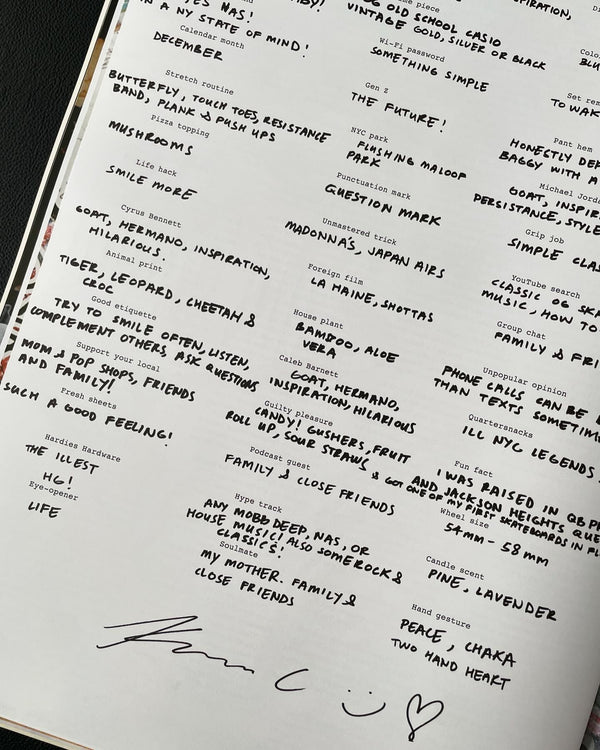 YES NAS!
IN A NY STATE OF MIND!
Calendar month
DECEMBER
Stretch routine
BUTTERFLY, TOUCH TOES, RESISTANCE
BAND, PLANK & PUSH UPS
Pizza topping
MUSHROOMS
Life hack
SMILE MORE
Cyrus Bennett
GOAT, HERMANO, INSPIRATION,
HILARIOUS.
Animal print
TIGER, LEOPARD, CHEETAH &
CROC
Good etiquette
TRY TO SMILE OFTEN, LISTEN,
COMPLEMENT OTHERS, ASK QUESTIONS
Support your local
MOM & POP SHOPS, FRIENDS
AND FAMILY!
Fresh sheets
SUCH A GOOD FEELING!
Hardies Hardware
THE ILLEST
HG!
Eye-opener
LIFE
piece
OG OLD SCHOOL CASIO
VINTAGE GOLD, SILVER OR BLACK
Wi-Fi password
SOMETHING SIMPLE
Gen Z
THE FUTURE!
NYC park
FLUSHING MALOOF
PARK
Punctuation mark
QUESTION MARK
Unmastered trick
MADONNA'S, JAPAN AIRS
Foreign film
LA HAINE, SHOTTAS
House plant
BAMBOO, ALOE
VERA
Caleb Barnett
GOAT, HERMANO,
INSPIRATION, HILARIOUS
Guilty pleasure
CANDY! GUSHERS, FRUIT
ROLL UP, SOUR STRAWS
Podcast guest
FAMILY & CLOSE FRIENDS
Hype track
ANY MOBB DEEP, NAS, OR
HOUSE MUSIC! ALSO SOME ROCK &
CLASSICS!
Soulmate
MY MOTHER. FAMILY &
CLOSE FRIENDS
INSPIRATION,
Set
TO
Pant hem
HONESTLY
BAGGY WITH A
Michael
GOAT,
PERSISTANCE,
Grip job
SIMPLE
YouTube search
CLASSIC OG
MUSIC, HOW TO
Group chat
FAMILY &
Unpopular opinion
PHONE CALLS CAN BE
THAN TEXTS
Quartersnacks
ILL NYC LEGENDS
Fun fact
I WAS RAISED IN QB
AND JACKSON HEIGHTS
& GOT ONE OF MY FIRST SKATEBOARDS IN
Wheel size
54MM - 58MM
Candle scent
PINE, LAVENDER
Hand gesture
PEACE, CHAKA
TWO HAND HEART